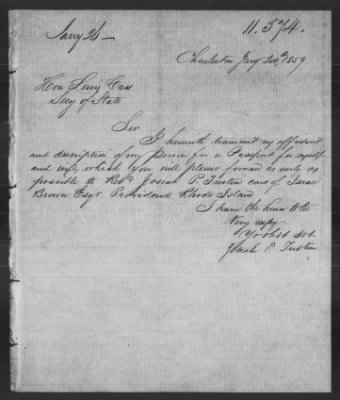 Jany 26 –
11.574.
Charleston Jany 20th 1859
Hon Lewis Cass
Secy of State
Sir
I herewith transmit my affidavit
and description of my Person for a Passport for myself
and wife, which you will please forward as early as
possible to Revd. Josiah P. Tustin care of Isaac
Brown Esqr Providence Rhode Island
I have the honor to be
Very respy
Yr obdt svt
Josiah P. Tustin